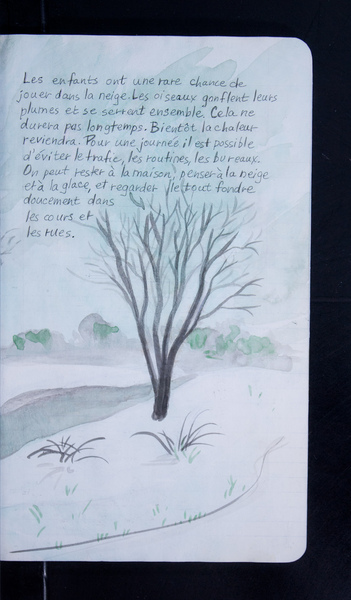 Les enfants ont une rare chance de
jouer dans la neige. Les oiseaux gonflent leurs
plumes et se serrent ensemble. Cela ne
durera pas longtemps. Bientôt la chaleur
reviendra. Pour une journée il est possible
d'éviter le trafic, les routines, les bureaux.
On peut rester à la maison, penser à la neige
et à la glace, et regarder le tout fondre
doucement dans
les cours et
les rues.